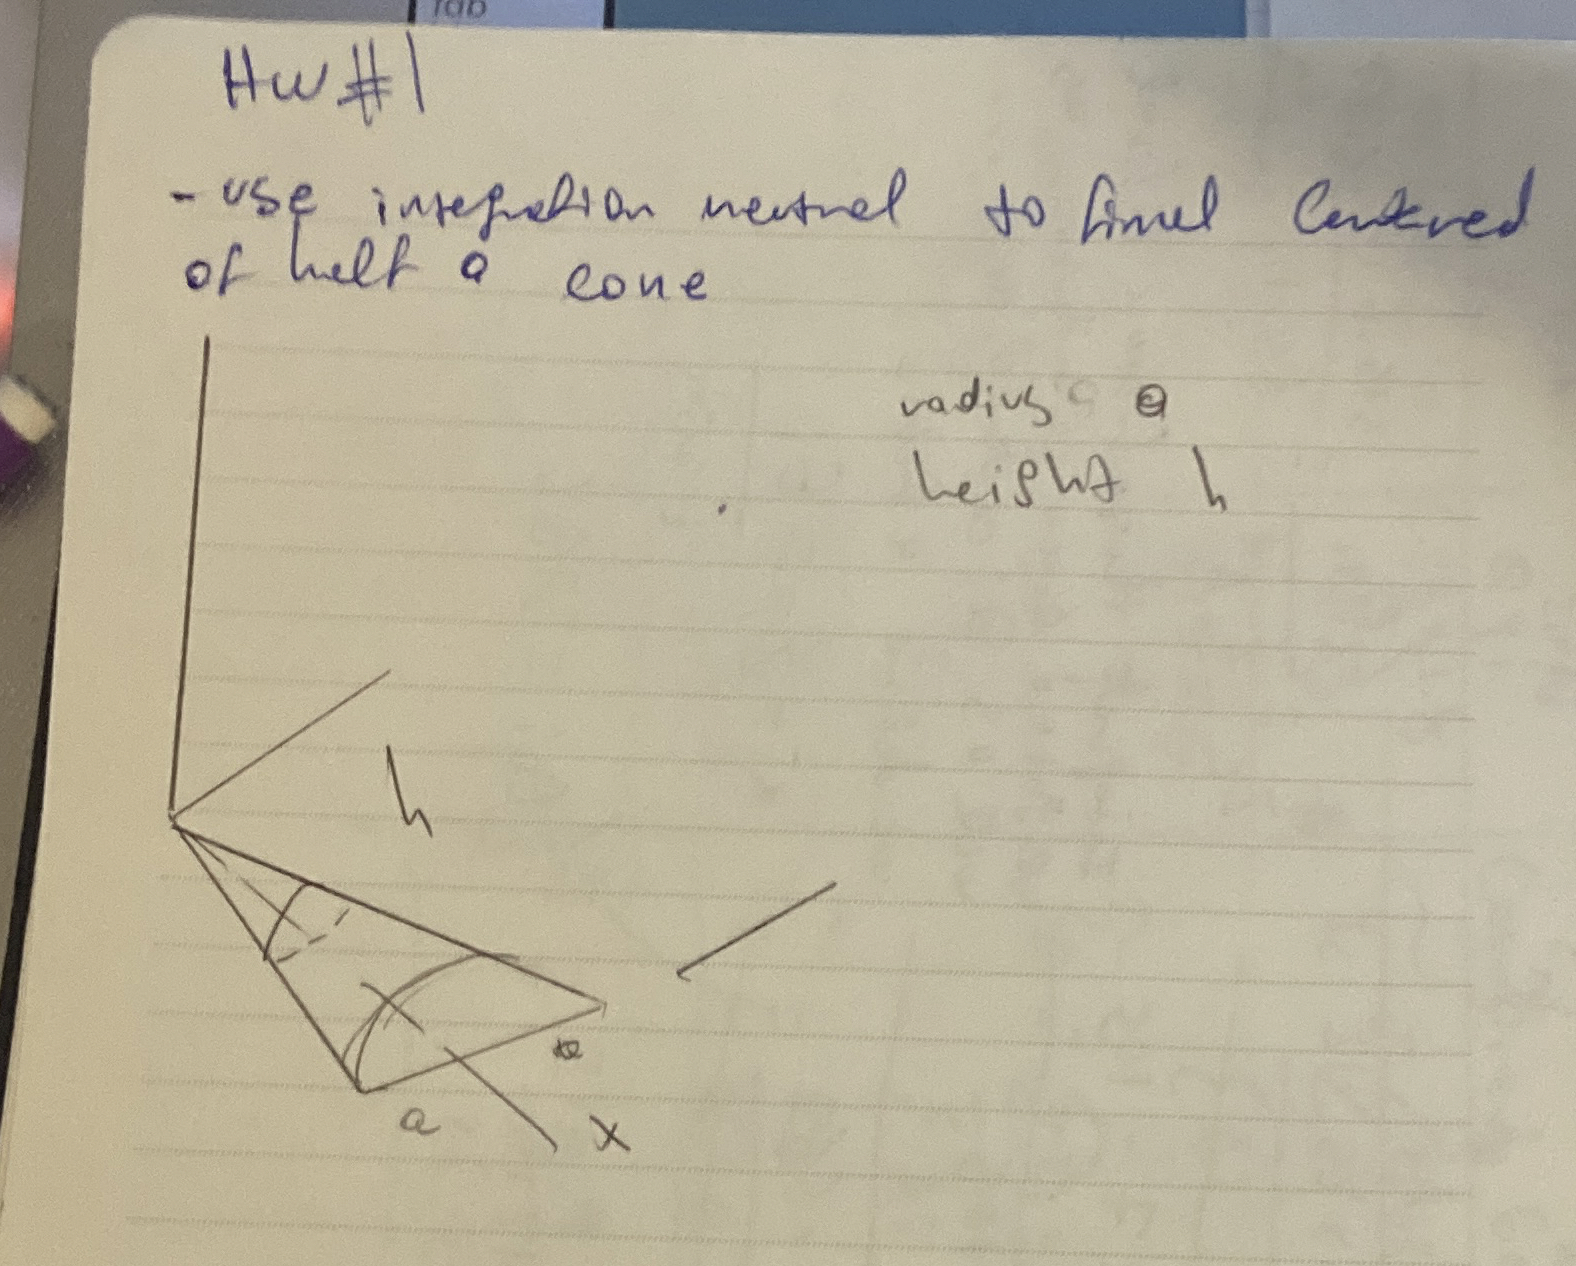 lab
HW #1
- use integration method to find Centered
of half a cone
radius a
height h
h
a
a
x